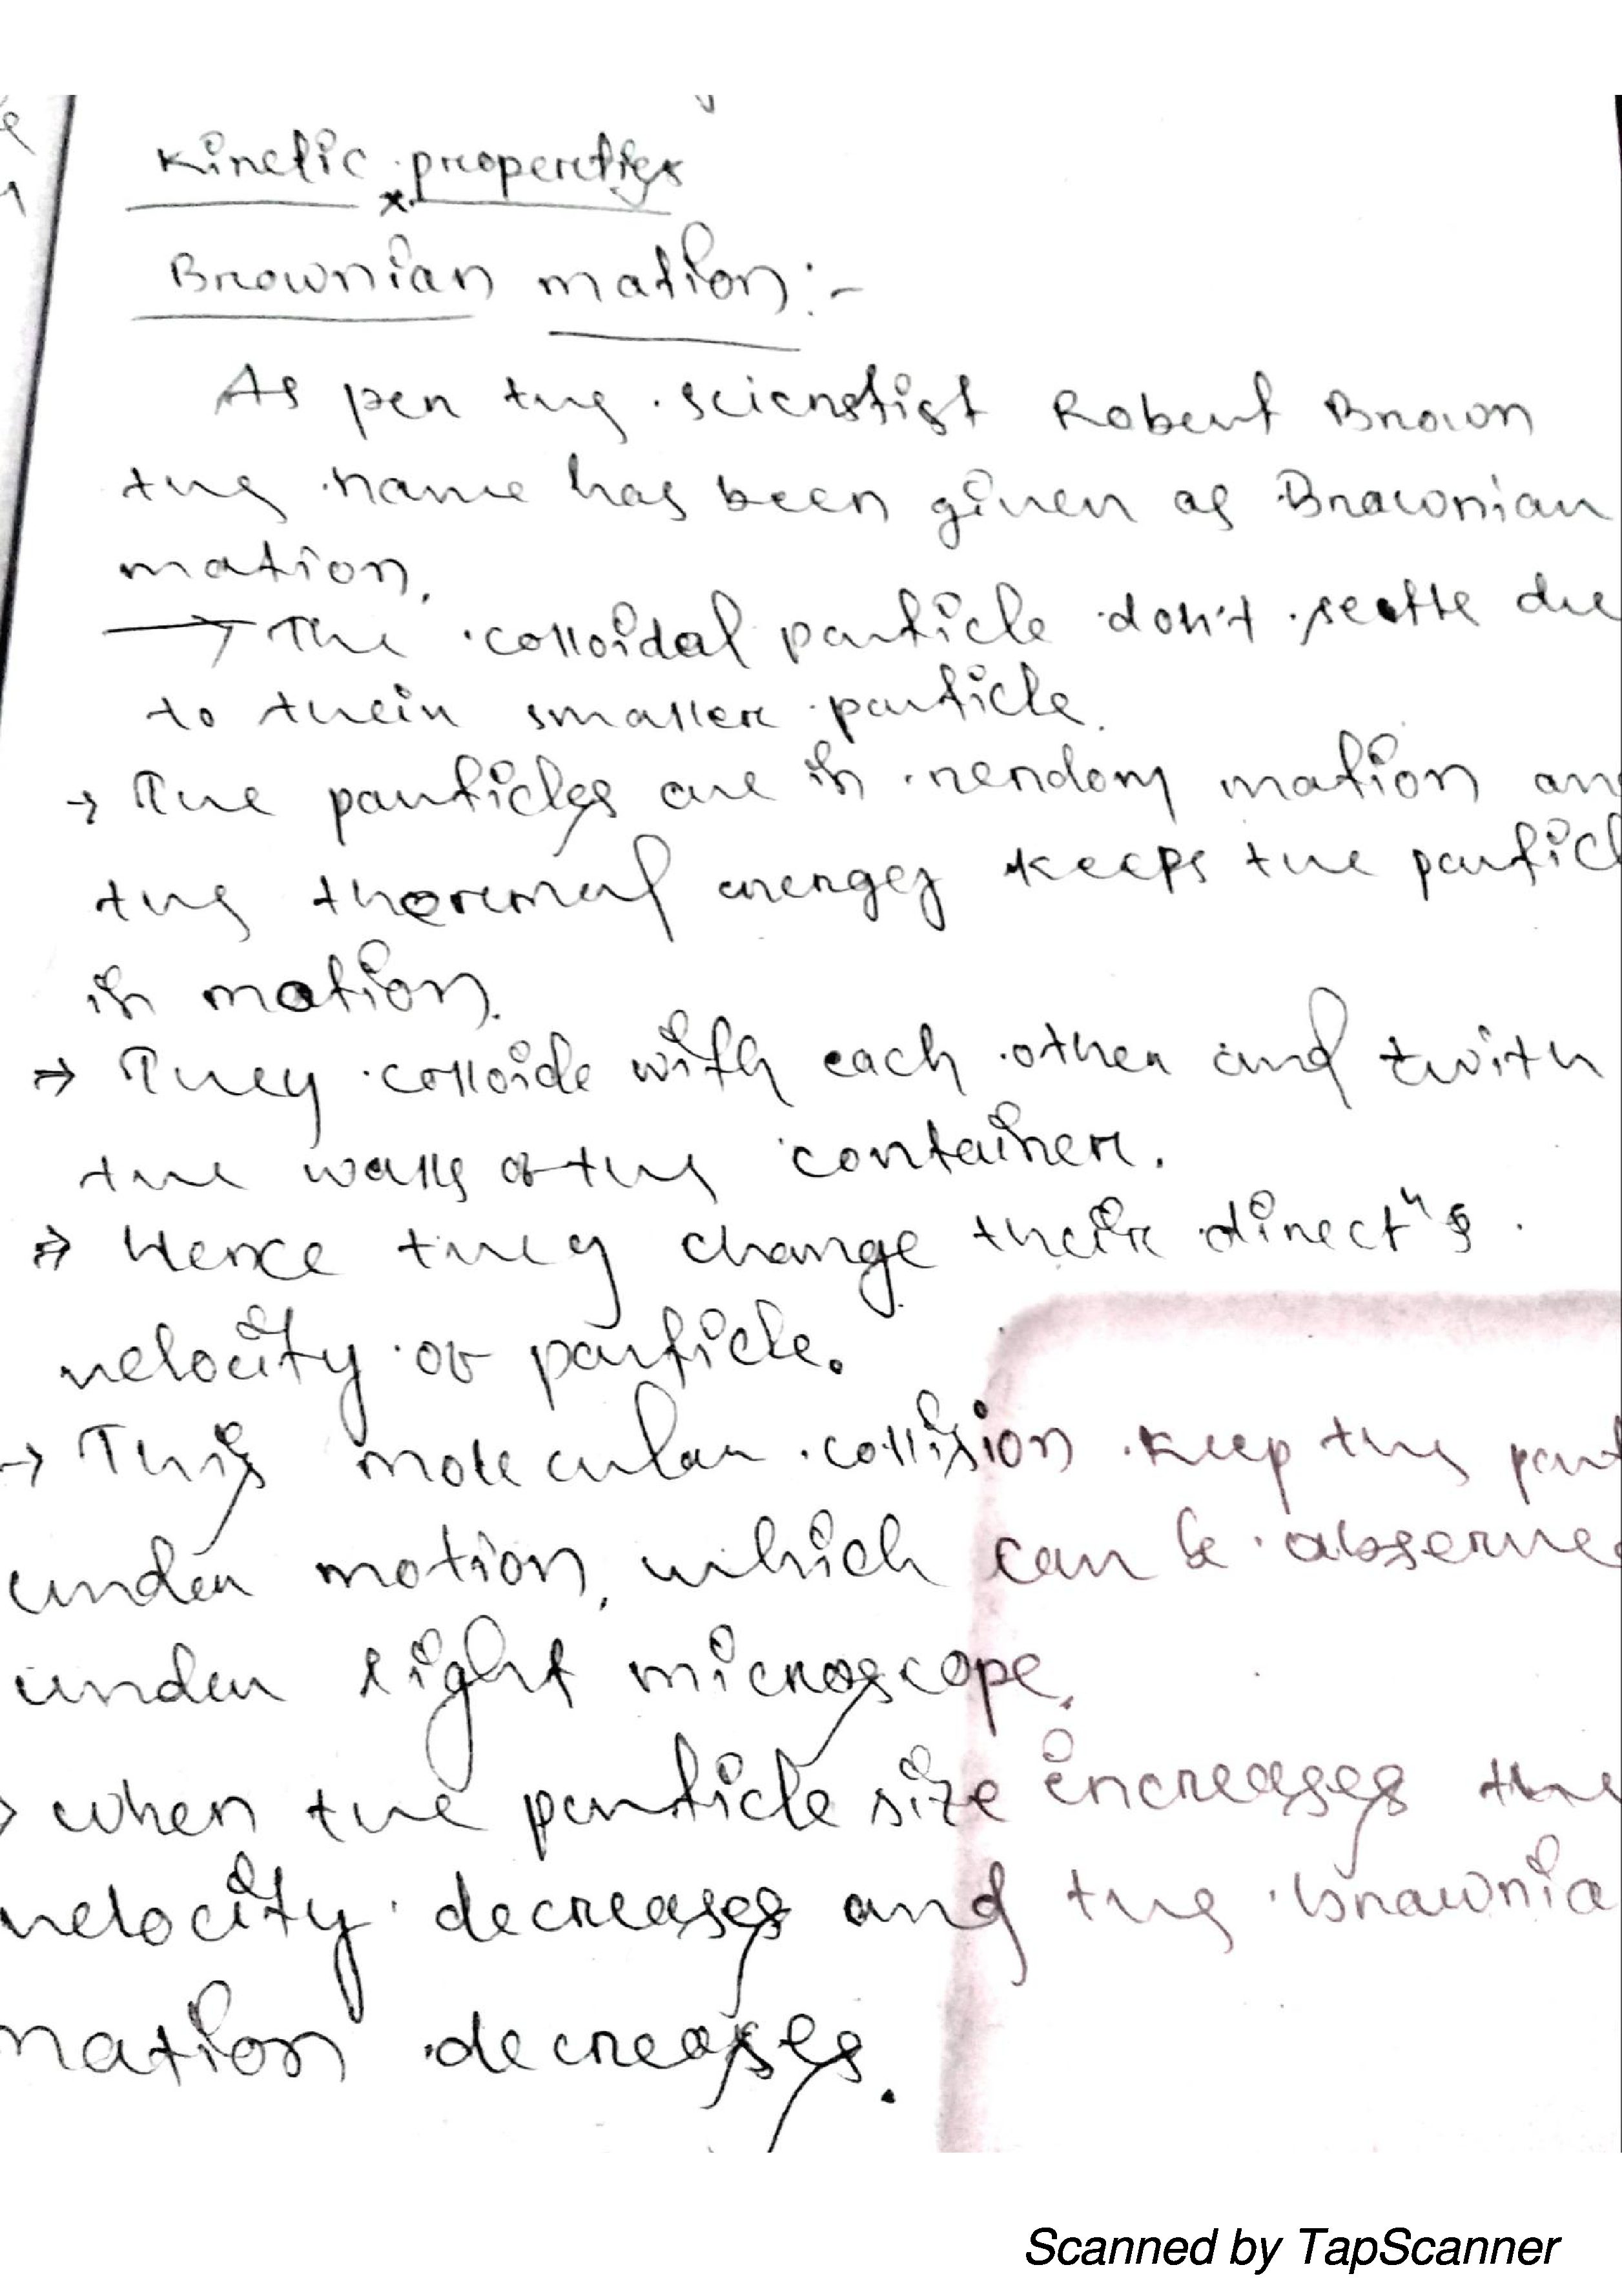 Kinetic properties
Brownian mation:-
As per the scienstist Robert Brown
the name has been given as Brawnian
mation.
→ The colloidal particle don't settle due
to their smaller particle.
→ The particles are in rendom mation an
the thermal energy keeps the particl
in motion.
⇒ They colloide with each other and with
the walls of the container.
⇒ Hence they change their directⁿs.
velocity of particle.
→ This molecular collision keep the part
under motion, which can be observe
under light microscope.
→ when the particle size increases the
velocity decreases and the brawnia
mation decreases.
Scanned by TapScanner